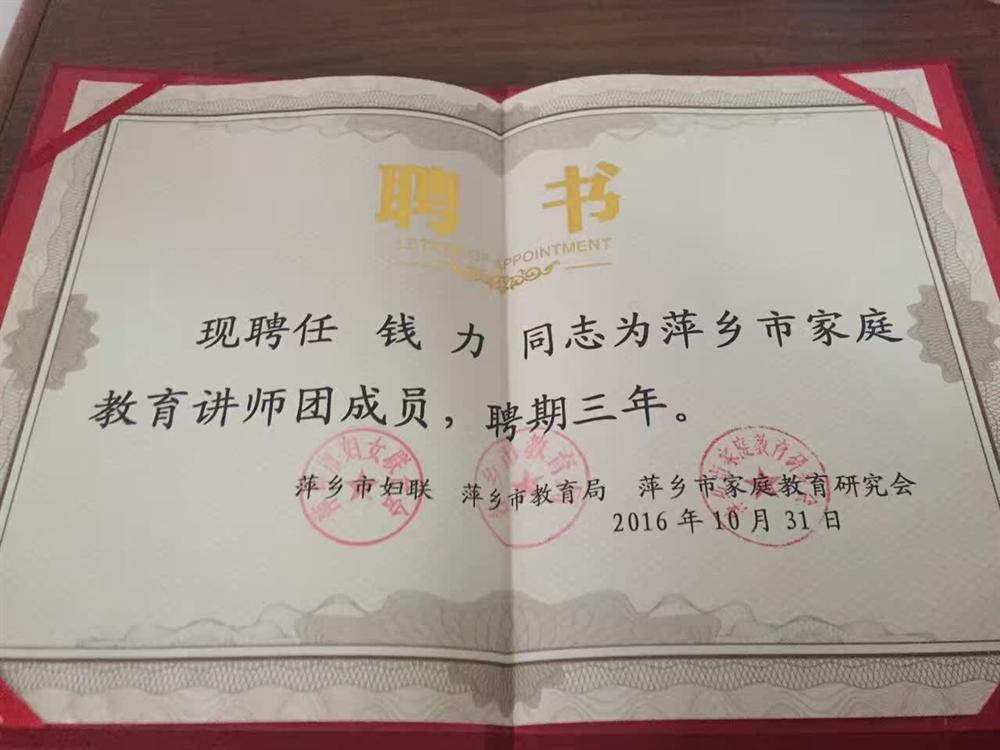 聘书
LETTER OF APPOINTMENT
现聘任 钱力 同志为萍乡市家庭
教育讲师团成员，聘期三年。
萍乡市妇联 萍乡市教育局 萍乡市家庭教育研究会
2016年10月31日